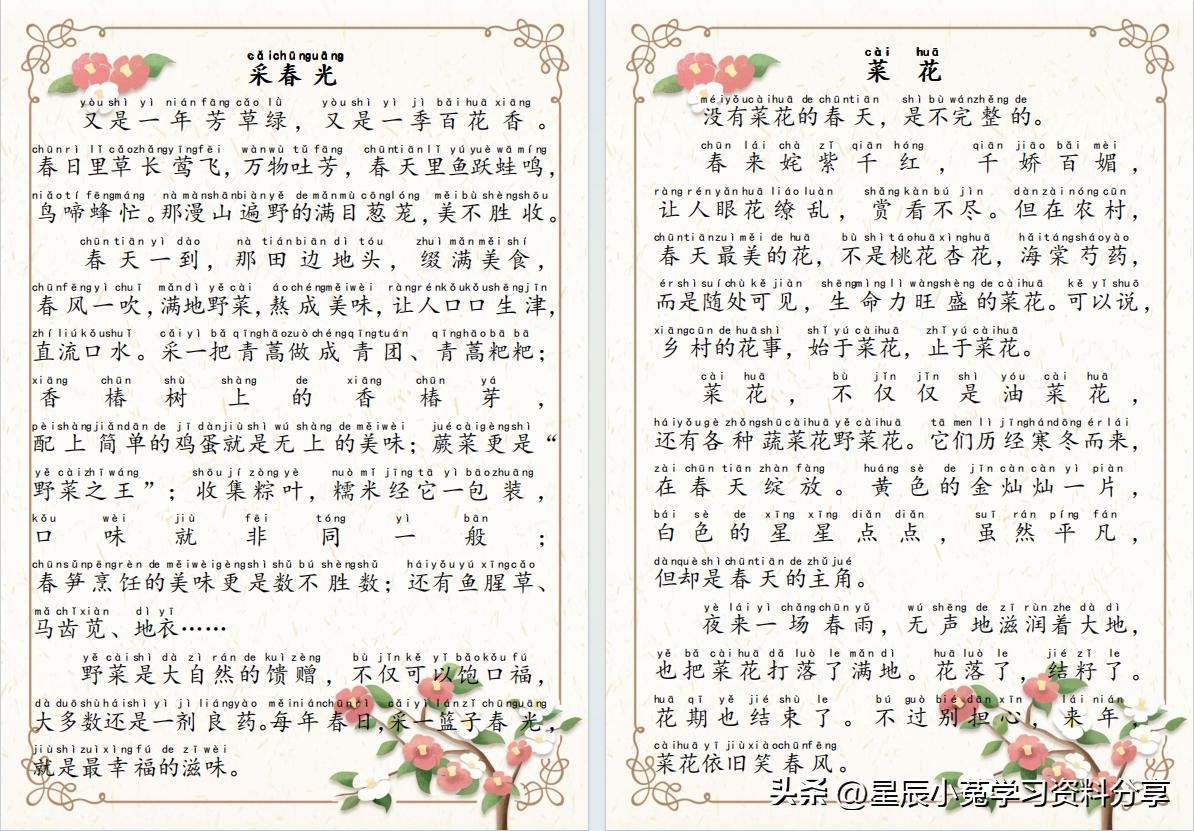 cǎichūnguāng
采春光
yòushì yì niánfāng cǎo lǜ yòushì yì jì bǎihuā xiāng
又是一年芳草绿，又是一季百花香。
chūnrì lǐ cǎozhǎngyīngfēi wànwù tǔ fāng chūntiānlǐ yúyuè wā míng
春日里草长莺飞，万物吐芳，春天里鱼跃蛙鸣，
niǎotí fēngmáng nà mànshānbiànyě de mǎnmù cōnglóng měibù shèngshōu
鸟啼蜂忙。那漫山遍野的满目葱茏，美不胜收。
chūntiān yì dào nà tiánbiān dì tóu zhuì mǎnměi shí
春天一到，那田边地头，缀满美食，
chūnfēngyì chuī mǎndì yěcài áochéngměiwèi ràngrénkǒukǒushēngjīn
春风一吹，满地野菜，熬成美味，让人口口生津，
zhí liúkǒushuǐ cǎiyì bǎ qīnghāozuòchéngqīngtuán qīnghāobā bā
直流口水。采一把青蒿做成青团、青蒿粑粑；
xiāng chūn shù shàng de xiāng chūn yá
香椿树上的香椿芽，
pèishàngjiǎndān de jī dànjiùshì wú shàng de měiwèi juécàigèngshì
配上简单的鸡蛋就是无上的美味；蕨菜更是“
yě càizhīwáng shōují zòngyè nuò mǐ jīngtā yì bāozhuāng
野菜之王”；收集粽叶，糯米经它一包装，
kǒu wèi jiù fēi tóng yì bān
口味就非同一般；
chūnsǔnpēngrèn de měiwèigèngshìshǔ bú shèngshǔ háiyǒuyú xīngcǎo
春笋烹饪的美味更是数不胜数；还有鱼腥草、
mǎ chǐxiàn dì yī
马齿苋、地衣……
yě càishì dà zì rán de kuì zèng bù jǐn kě yǐ bǎokǒu fú
野菜是大自然的馈赠，不仅可以饱口福，
dà duōshùháishì yì jì liángyào měiniánchūnrì cǎiyì lánzǐ chūnguāng
大多数还是一剂良药。每年春日，采一篮子春光，
jiùshìzuìxìngfú de zīwèi
就是最幸福的滋味。
cài huā
菜花
méiyǒucàihuā de chūntiān shì bù wánzhěng de
没有菜花的春天，是不完整的。
chūn lái chà zǐ qiān hóng qiān jiāo bǎi mèi
春来姹紫千红，千娇百媚，
ràngrényǎnhuā liáoluàn shǎngkàn bú jìn dànzàinóngcūn
让人眼花缭乱，赏看不尽。但在农村，
chūntiānzuìměi de huā bù shìtáohuāxìnghuā hǎitángsháoyào
春天最美的花，不是桃花杏花，海棠芍药，
érshìsuíchù kě jiàn shēngmìnglì wàngshèng de càihuā kě yǐshuō
而是随处可见，生命力旺盛的菜花。可以说，
xiāngcūn de huāshì shǐyú càihuā zhǐyú càihuā
乡村的花事，始于菜花，止于菜花。
cài huā bù jǐn jǐn shì yóu cài huā
菜花，不仅仅是油菜花，
háiyǒugè zhǒngshūcàihuāyěcàihuā tā men lì jīnghándōng érlái
还有各种蔬菜花野菜花。它们历经寒冬而来，
zài chūn tiān zhàn fàng huáng sè de jīn càn càn yì piàn
在春天绽放。黄色的金灿灿一片，
bái sè de xīng xīng diǎn diǎn suī rán píng fán
白色的星星点点，虽然平凡，
dànquèshìchūntiān de zhǔjué
但却是春天的主角。
yè láiyì chǎngchūnyǔ wú shēng de zī rùn zhe dà dì
夜来一场春雨，无声地滋润着大地，
yě bǎ càihuā dǎ luò le mǎndì huāluò le jié zǐ le
也把菜花打落了满地。花落了，结籽了。
huā qī yě jié shù le bú guò bié dān xīn lái nián
花期也结束了。不过别担心，来年，
càihuā yī jiùxiàochūnfēng
菜花依旧笑春风。
头条 @星辰小菟学习资料分享